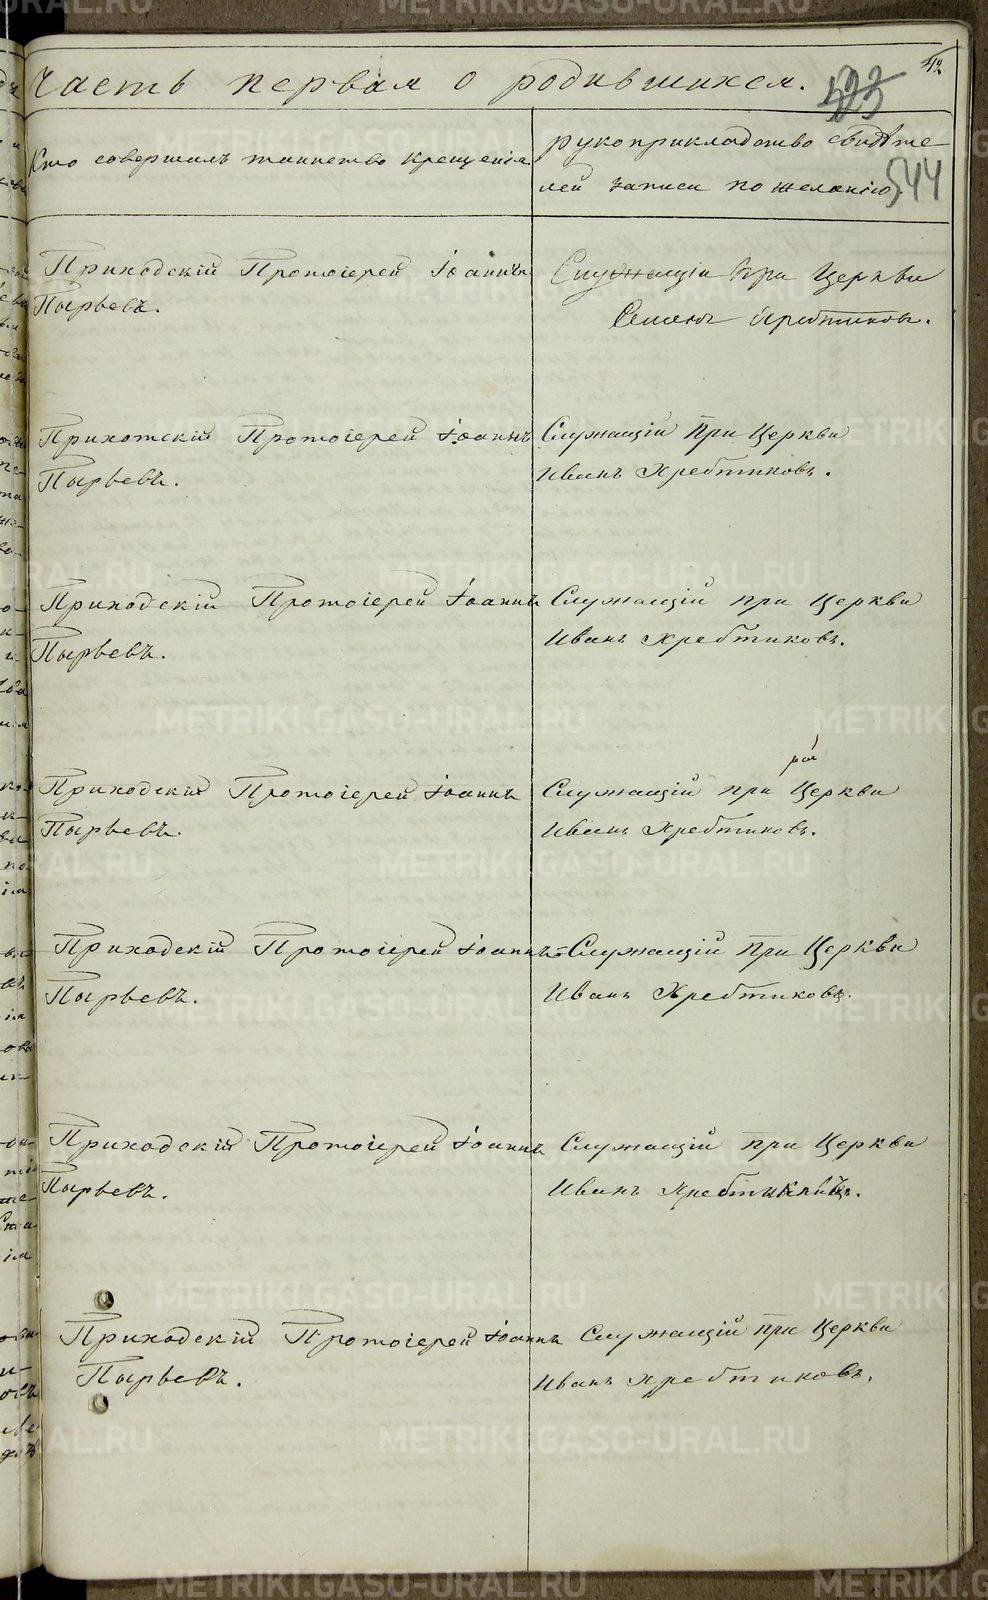 Часть первая о родившихся.
42
523
544
Кто совершалъ таинство крещенія
рукоприкладство свидѣте-
лей записи по желанію
Приходскій Протоіерей Іоаннъ
Пырьевъ.
Служащій при Церкви
Семенъ Хребтиковъ.
Прихотскій Протоіерей Іоаннъ
Пырьевъ.
Служащій при Церкви
Иванъ Хребтиковъ.
Приходскій Протоіерей Іоаннъ
Пырьевъ.
Служащій при Церкви
Иванъ Хребтиковъ.
Приходскій Протоіерей Іоаннъ
Пырьевъ.
Служащій при Церкви
Иванъ Хребтиковъ.
Приходскій Протоіерей Іоаннъ
Пырьевъ.
Служащій при Церкви
Иванъ Хребтиковъ.
Приходскій Протоіерей Іоаннъ
Пырьевъ.
Служащій при Церкви
Иванъ
Приходскій Протоіерей Іоаннъ
Пырьевъ.
Служащій при Церкви
Иванъ Хребтиковъ.
METRIKI.GASO-URAL.RU